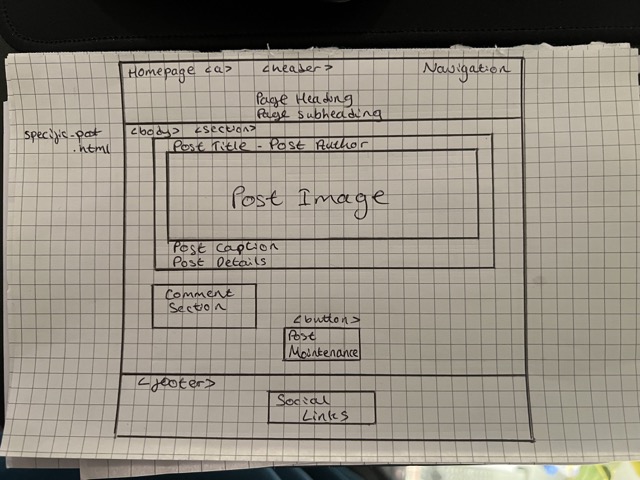 Homepage <a> <header> Navigation
Page Heading
Page subheading
specific-post
.html
<body> <section>
Post Title - Post Author
Post Image
Post Caption
Post Details
Comment
Section
<button>
Post
Maintenance
<footer>
Social
Links